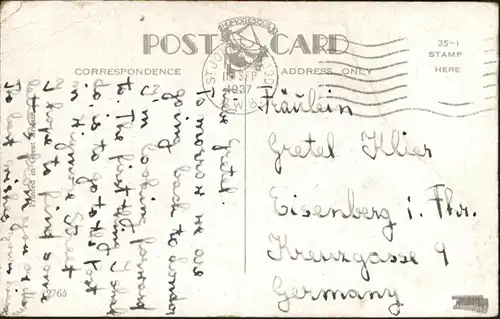 POST CARD
HUMORESQUE
CORRESPONDENCE
ADDRESS ONLY
35-1
STAMP
HERE
SEP
1937
Dear Gretel.
Tomorrow we are
going back to London
I'm looking forward
to. The first thing I shall
do is to go to the Post
in Street
I hope to find some
letters from you
The best wishes
Fräulein
Gretel Klier
Eisenberg i. Thr.
Kreuzgasse 9
Germany
2765